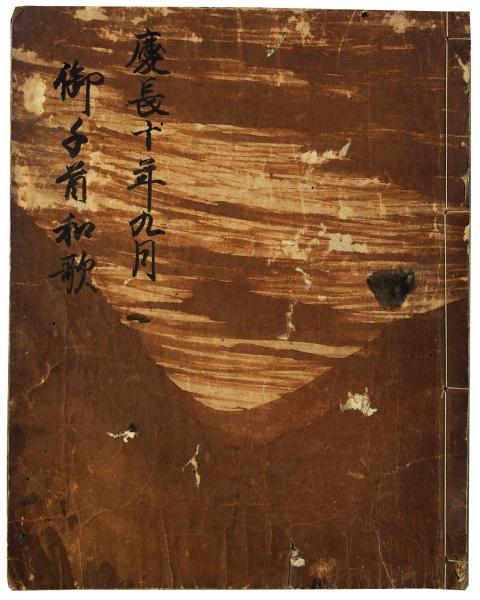 慶長十年九月
御千首和歌